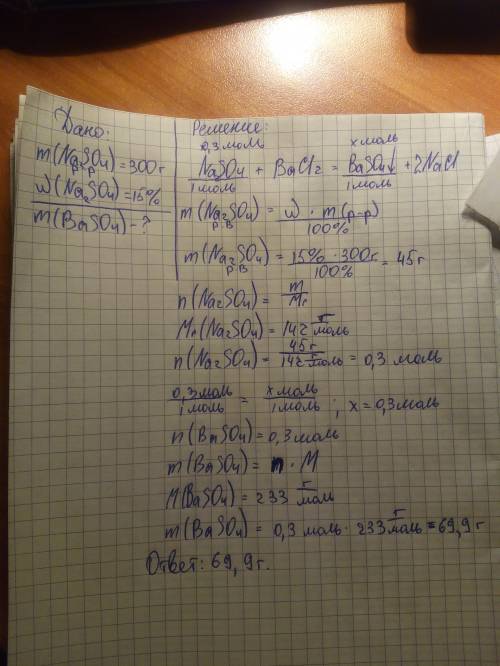 Дано:
m(Na₂SO₄) = 300 г
р-р
ω(Na₂SO₄) = 15%
m(BaSO₄) - ?
Решение:
0,3 моль x моль
NaSO₄ + BaCl₂ = BaSO₄↓ + 2NaCl
1 моль 1 моль
m(Na₂SO₄) = ω · m(р-р) / 100%
р.в
m(Na₂SO₄) = 15% · 300 г / 100% = 45 г
р.в
n(Na₂SO₄) = m / Mr
Mr(Na₂SO₄) = 142 г/моль
n(Na₂SO₄) = 45 г / 142 г/моль = 0,3 моль
0,3 моль / 1 моль = x моль / 1 моль ; x = 0,3 моль
n(BaSO₄) = 0,3 моль
m(BaSO₄) = n · M
M(BaSO₄) = 233 г/моль
m(BaSO₄) = 0,3 моль · 233 г/моль = 69,9 г
Ответ: 69,9 г.